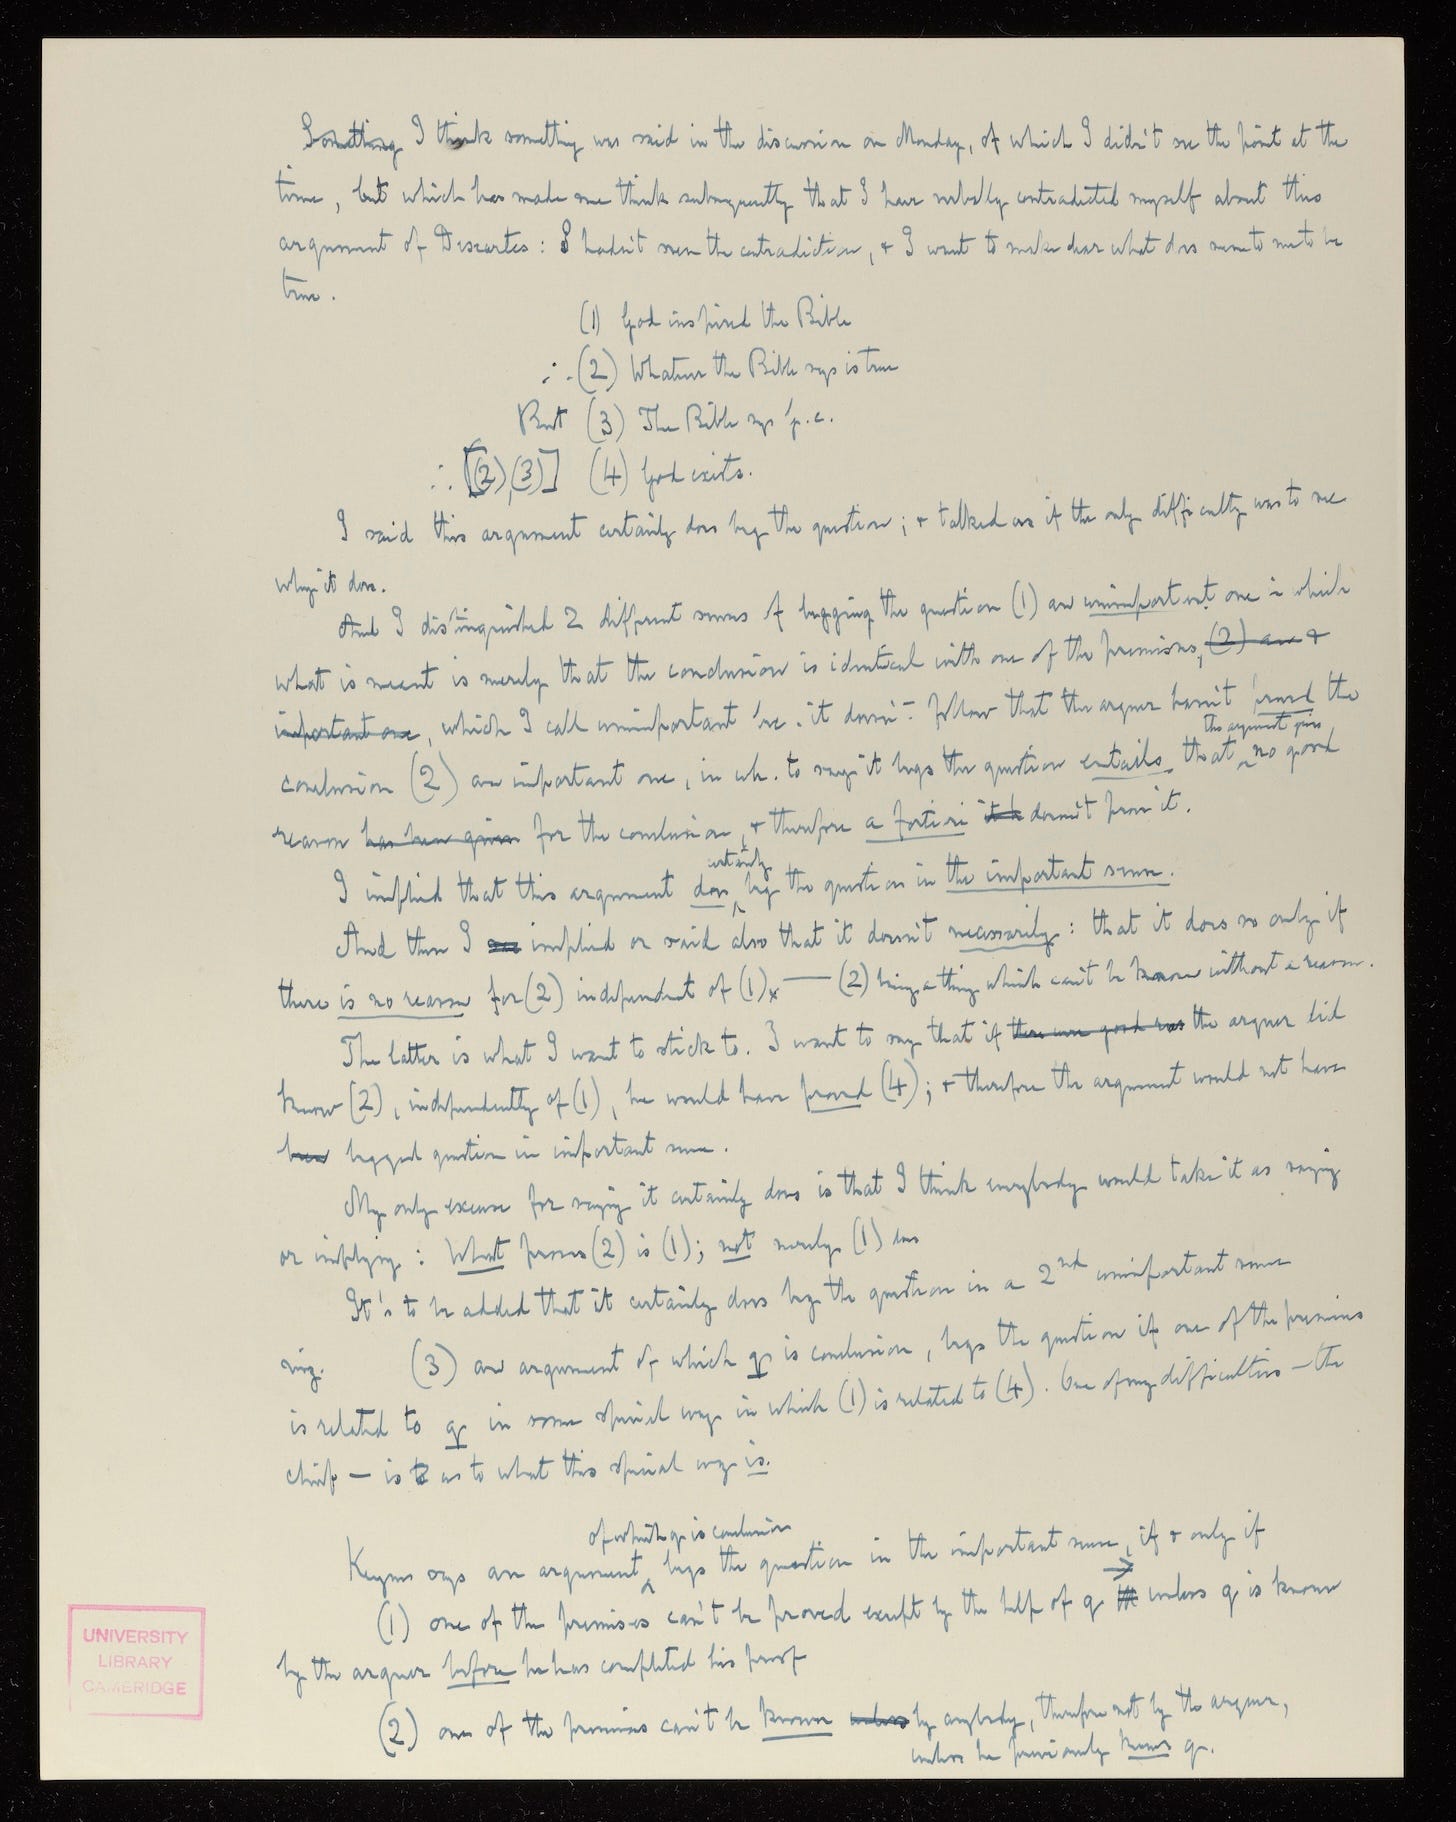 Something I think something was said in the discussion on Monday, of which I didn't see the point at the
time, but which has made me think subsequently that I have verbally contradicted myself about this
argument of Descartes: I hadn't seen the contradiction, & I want to make clear what does seem to me to be
true.
(1) God inspired the Bible
∴ (2) Whatever the Bible says is true
But (3) The Bible says
∴ [(2),(3)] (4) God exists.
I said this argument certainly does beg the question; & talked as if the only difficulty was to see
why it does.
And I distinguished 2 different senses of begging the question (1) an unimportant one in which
what is meant is merely that the conclusion is identical with one of the premisses, (2) an &
important one, which I call unimportant bec. it doesn't follow that the arguer hasn't proved the
this argument gives
conclusion (2) an important one, in wh. to say it begs the question entails that no good
reason has been given for the conclusion, & therefore a fortiori doesn't prove it.
certainly
I implied that this argument does beg the question in the important sense.
And then I implied or said also that it doesn't necessarily: that it does so only if
there is no reason for (2) independent of (1), — (2) being a thing which can't be known without a reason.
The latter is what I want to stick to. I want to say that if there were good reas the arguer did
know (2), independently of (1), he would have proved (4); & therefore the argument would not have
been begged question in important sense.
My only excuse for saying it certainly does is that I think everybody would take it as saying
or implying: What proves (2) is (1); not merely (1) does
It's to be added that it certainly does beg the question in a 2nd unimportant sense
viz. (3) an argument of which q is conclusion, begs the question if one of the premisses
is related to q in some special way in which (1) is related to (4). One of my difficulties — the
chief — is as to what this special way is.
of which q is conclusion
Keynes says an argument begs the question in the important sense, if & only if
(1) one of the premisses can't be proved except by the help of q unless q is known
by the arguer before he has completed his proof
(2) one of the premisses can't be known unless by anybody, therefore not by the arguer,
unless he previously knows q.
UNIVERSITY
LIBRARY
CAMBRIDGE